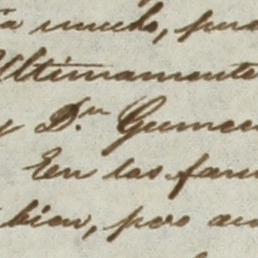 mucho, pero
Ultimamente
y D.ⁿ Gumer
En las fam
bien, pero au